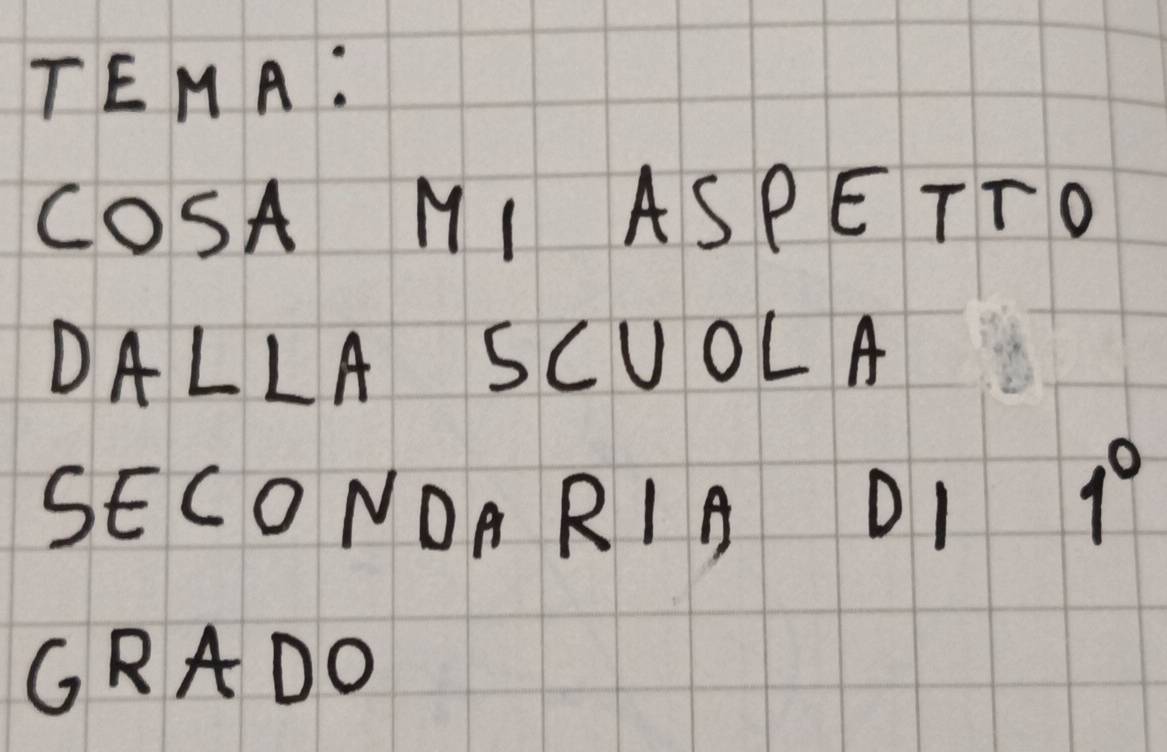 TEMA:
COSA MI ASPETTO
DALLA SCUOLA
SECONDARIA DI 1°
GRADO